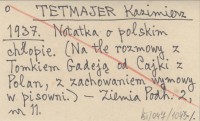 o
TETMAJER Kazimierz
1937. Notatka o polskim
chłopie. (Na tle rozmowy z
Tomkiem Gadeją od Cajki z
Polan, z zachowaniem wymowy
w pisowni.) – Ziemia Podh. 2,
nr 11.